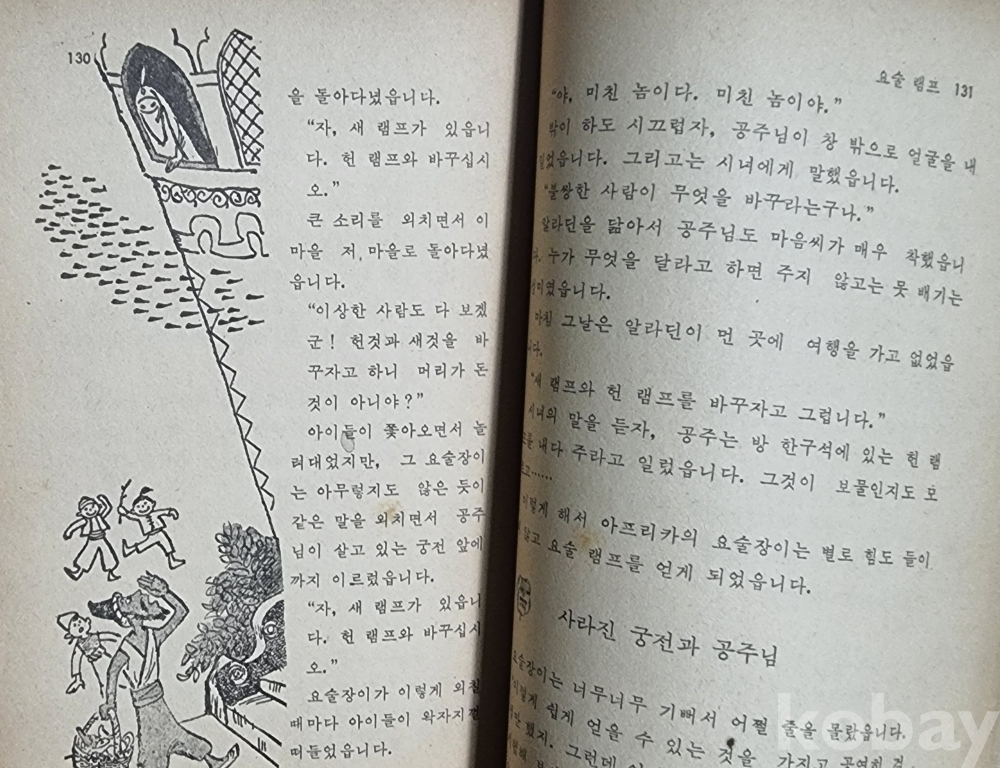 130
을 돌아다녔읍니다.
“자, 새 램프가 있읍니
다. 헌 램프와 바꾸십시
오.”
큰 소리를 외치면서 이
마을 저 마을로 돌아다녔
읍니다.
“이상한 사람도 다 보겠
군! 헌것과 새것을 바
꾸자고 하니 머리가 돈
것이 아니야?”
아이들이 쫓아오면서 놀
려대었지만, 그 요술장이
는 아무렇지도 않은 듯이
같은 말을 외치면서 공주
님이 살고 있는 궁전 앞에
까지 이르렀읍니다.
“자, 새 램프가 있읍니
다. 헌 램프와 바꾸십시
오.”
요술장이가 이렇게 외칠
때마다 아이들이 왁자지껄
떠들었읍니다.
요술 램프 131
“야, 미친 놈이다. 미친 놈이야.”
밖이 하도 시끄럽자, 공주님이 창 밖으로 얼굴을 내
밀었읍니다. 그리고는 시녀에게 말했읍니다.
“불쌍한 사람이 무엇을 바꾸라는구나.”
알라딘을 닮아서 공주님도 마음씨가 매우 착했읍니
다. 누가 무엇을 달라고 하면 주지 않고는 못 배기는
성미였읍니다.
마침 그날은 알라딘이 먼 곳에 여행을 가고 없었읍
니다.
“새 램프와 헌 램프를 바꾸자고 그럽니다.”
시녀의 말을 듣자, 공주는 방 한구석에 있는 헌 램
프를 내다 주라고 일렀읍니다. 그것이 보물인지도 모
르고……
이렇게 해서 아프리카의 요술장이는 별로 힘도 들이
않고 요술 램프를 얻게 되었읍니다.
사라진 궁전과 공주님
요술장이는 너무너무 기뻐서 어쩔 줄을 몰랐읍니다.
이렇게 쉽게 얻을 수 있는 것을 가지고 공연히
했지. 그런데
kobay